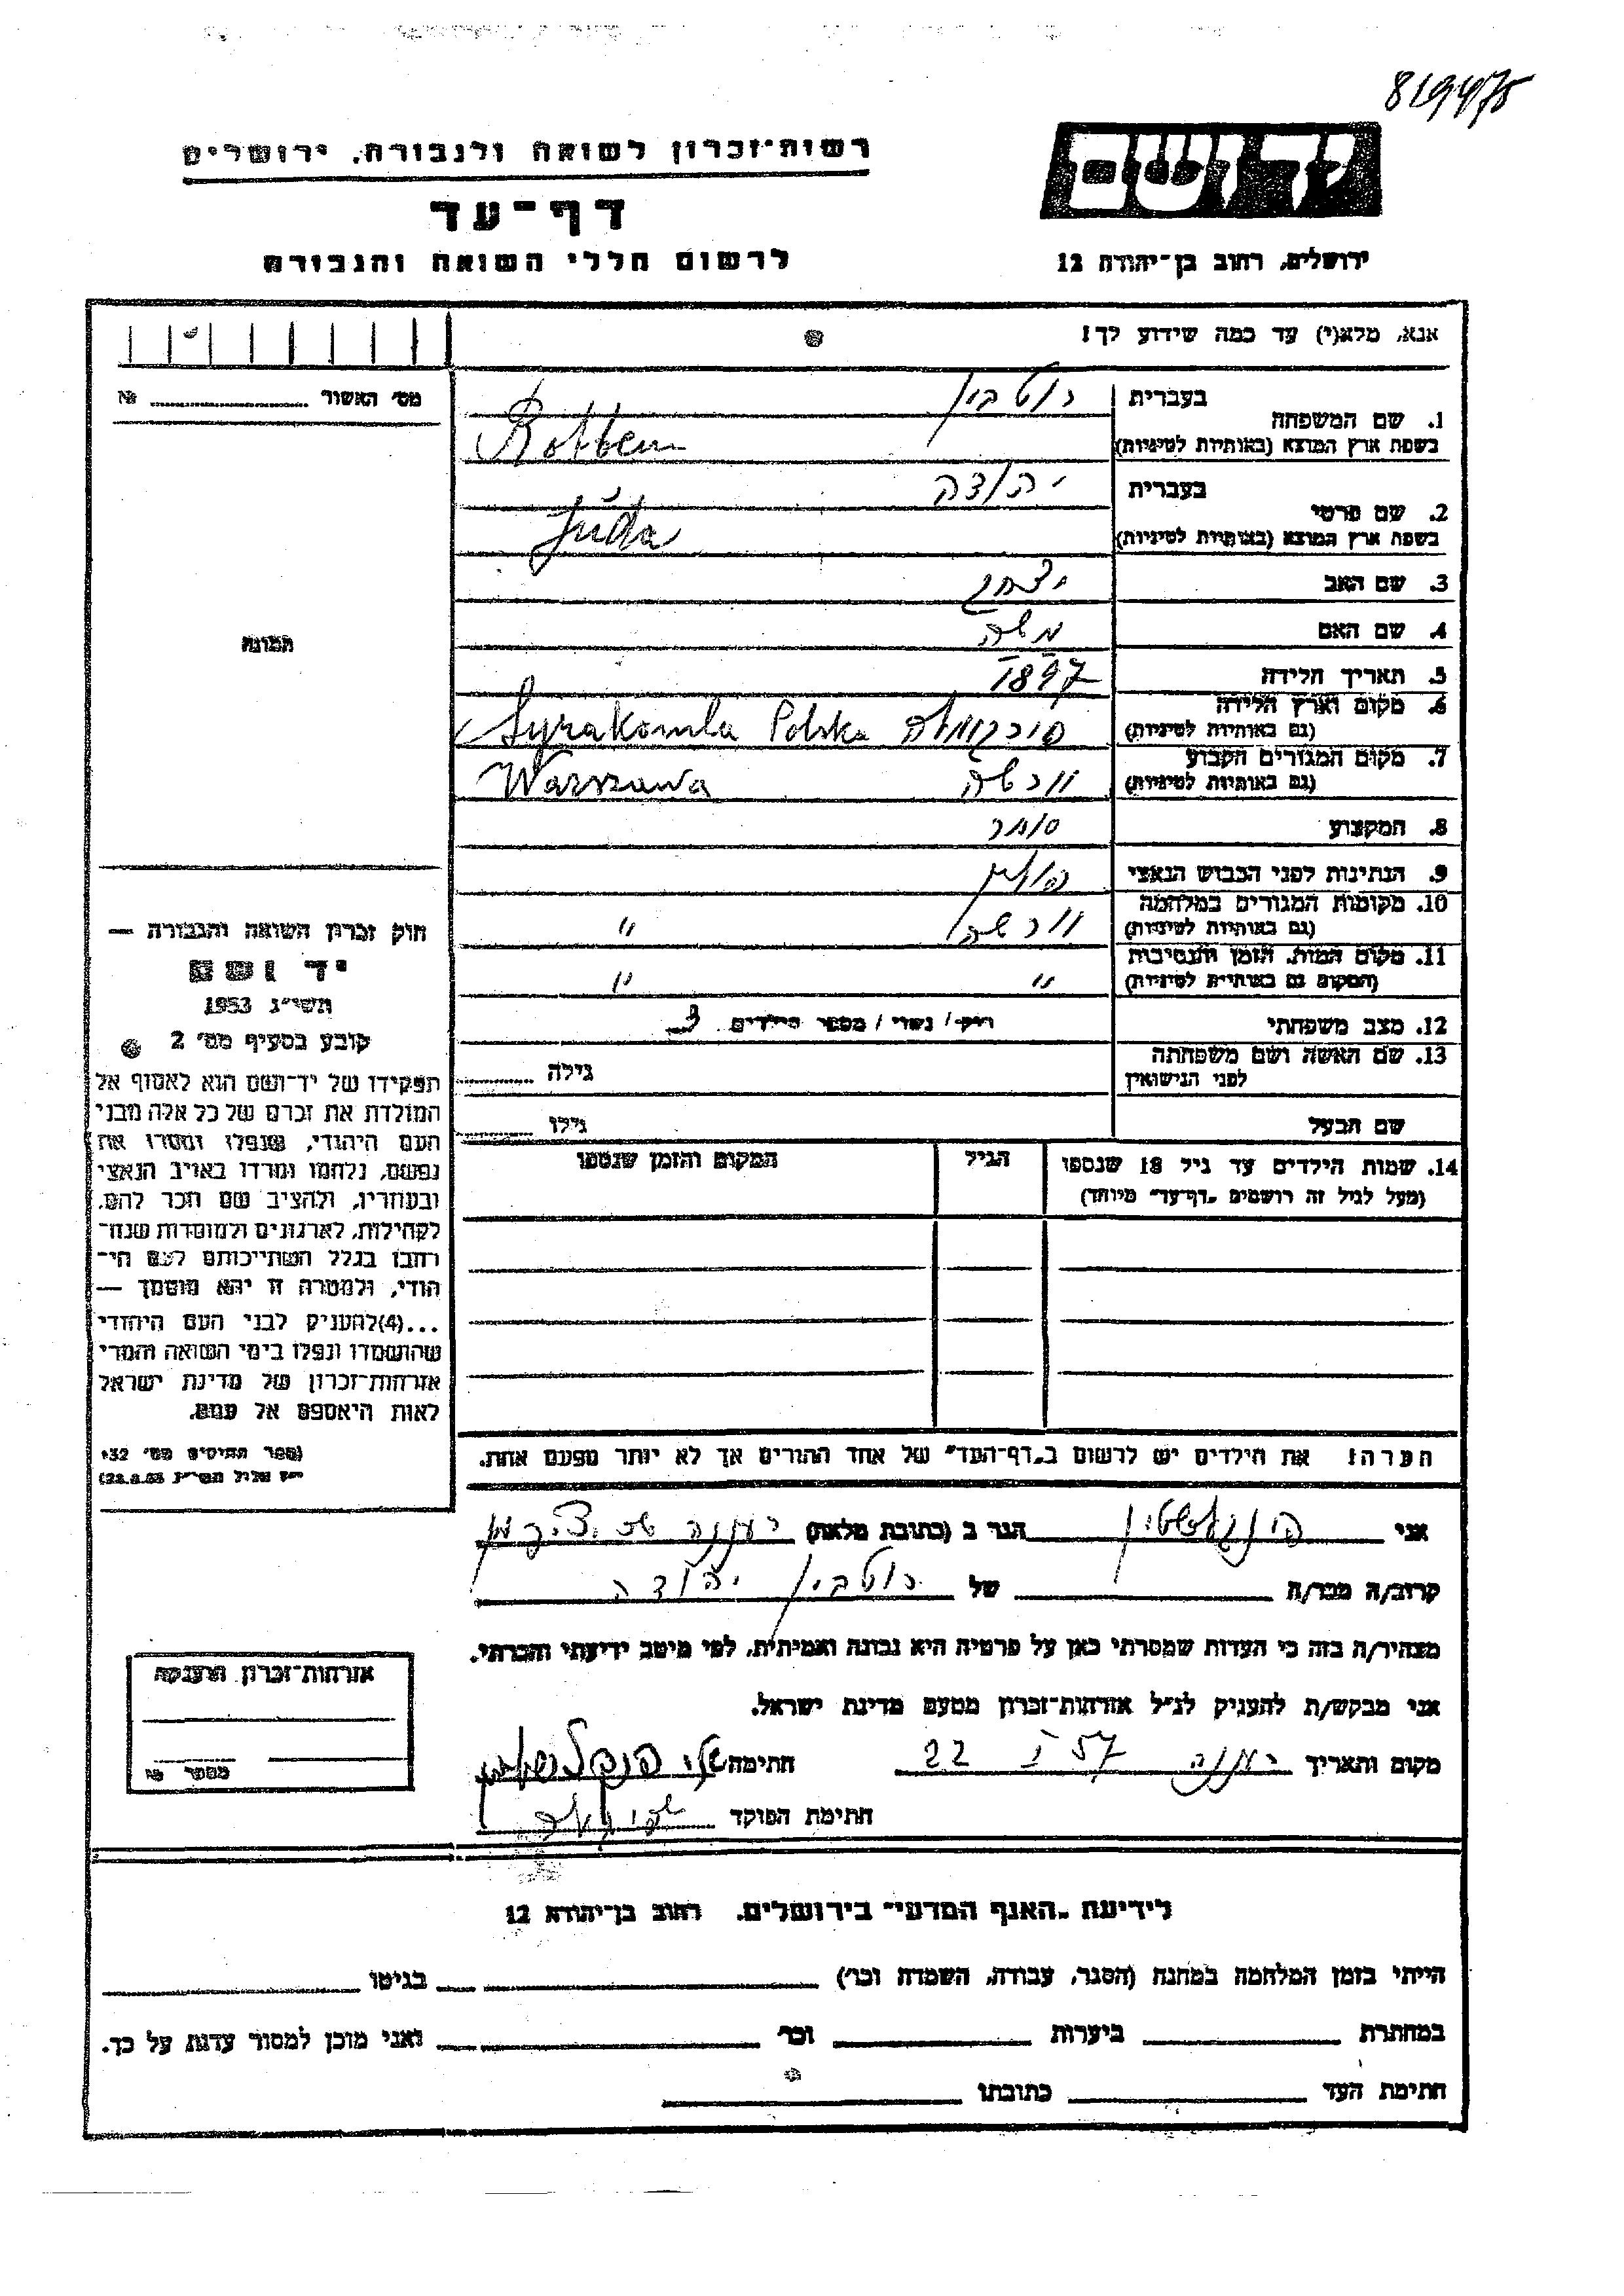 819475
רשות־זכרון לשואה ולגבורה, ירושלים
יד ושם
דף־עד
לרשום חללי השואה והגבורה
ירושלים, רחוב בן־יהודה 12
אנא, מלא(י) עד כמה שידוע לך!
מס׳ האשור № 
1. שם המשפחה
בעברית רוטבין
בשפת ארץ המוצא (באותיות לטיניות)
2. שם פרטי
בעברית יהודה
בשפת ארץ המוצא (באותיות לטיניות) Juda
3. שם האב יצחק
4. שם האם
5. תאריך הלידה 1897
6. מקום וארץ הלידה
(גם באותיות לטיניות) Syrakomla Polska
7. מקום המגורים הקבוע
(גם באותיות לטיניות) ורשה Warszawa
8. המקצוע סוחר
9. הנתינות לפני הכבוש הנאצי פולין
10. מקומות המגורים במלחמה
(גם באותיות לטיניות) ורשה "
11. מקום המות, הזמן והנסיבות
(המקום גם באותיות לטיניות) " "
12. מצב משפחתי רווק/ נשוי/ מספר הילדים 3
13. שם האשה ושם משפחתה
לפני הנישואין
גילה
שם הבעל גילו
14. שמות הילדים עד גיל 18 שנספו
(מעל לגיל זה רושמים „דף־עד" מיוחד)
הגיל
המקום והזמן שנספו
תמונה
חוק זכרון השואה והגבורה —
יד ושם
תשי״ג 1953
קובע בסעיף מס׳ 2
תפקידו של יד־ושם הוא לאסוף אל
המולדת את זכרם של כל אלה מבני
העם היהודי, שנפלו ומסרו את
נפשם, נלחמו ומרדו באויב הנאצי
ובעוזריו, ולהציב שם וזכר להם,
לקהילות, לארגונים ולמוסדות שנח־
רבו בגלל השתייכותם לעם הי־
הודי, ולמטרה זו יהא מוסמך —
...(4)להעניק לבני העם היהודי
שהושמדו ונפלו בימי השואה והמרי
אזרחות־זכרון של מדינת ישראל
לאות היאספם אל עמם.
(ספר החוקים מס׳ 132
הערה: את הילדים יש לרשום ב„דף־העד" של אחד ההורים אך לא יותר מפעם אחת.
אני פינקלשטין הגר ב (כתובת מלאה) רעננה
קרוב/ה מכר/ה של רוטבין יהודה
מצהיר/ה בזה כי העדות שמסרתי כאן על פרטיה היא נכונה ואמיתית, לפי מיטב ידיעתי והכרתי.
אני מבקש/ת להעניק לנ״ל אזרחות־זכרון מטעם מדינת ישראל.
מקום ותאריך רעננה 22 I 57 חתימה
חתימת הפוקד
אזרחות־זכרון הוענקה
מספר №
לידיעת „האגף המדעי" בירושלים, רחוב בן־יהודה 12
הייתי בזמן המלחמה במחנה (הסגר, עבודה, השמדה וכו׳) בגיטו
במחתרת ביערות וכו׳ ואני מוכן למסור עדות על כך.
חתימת העד כתובתו